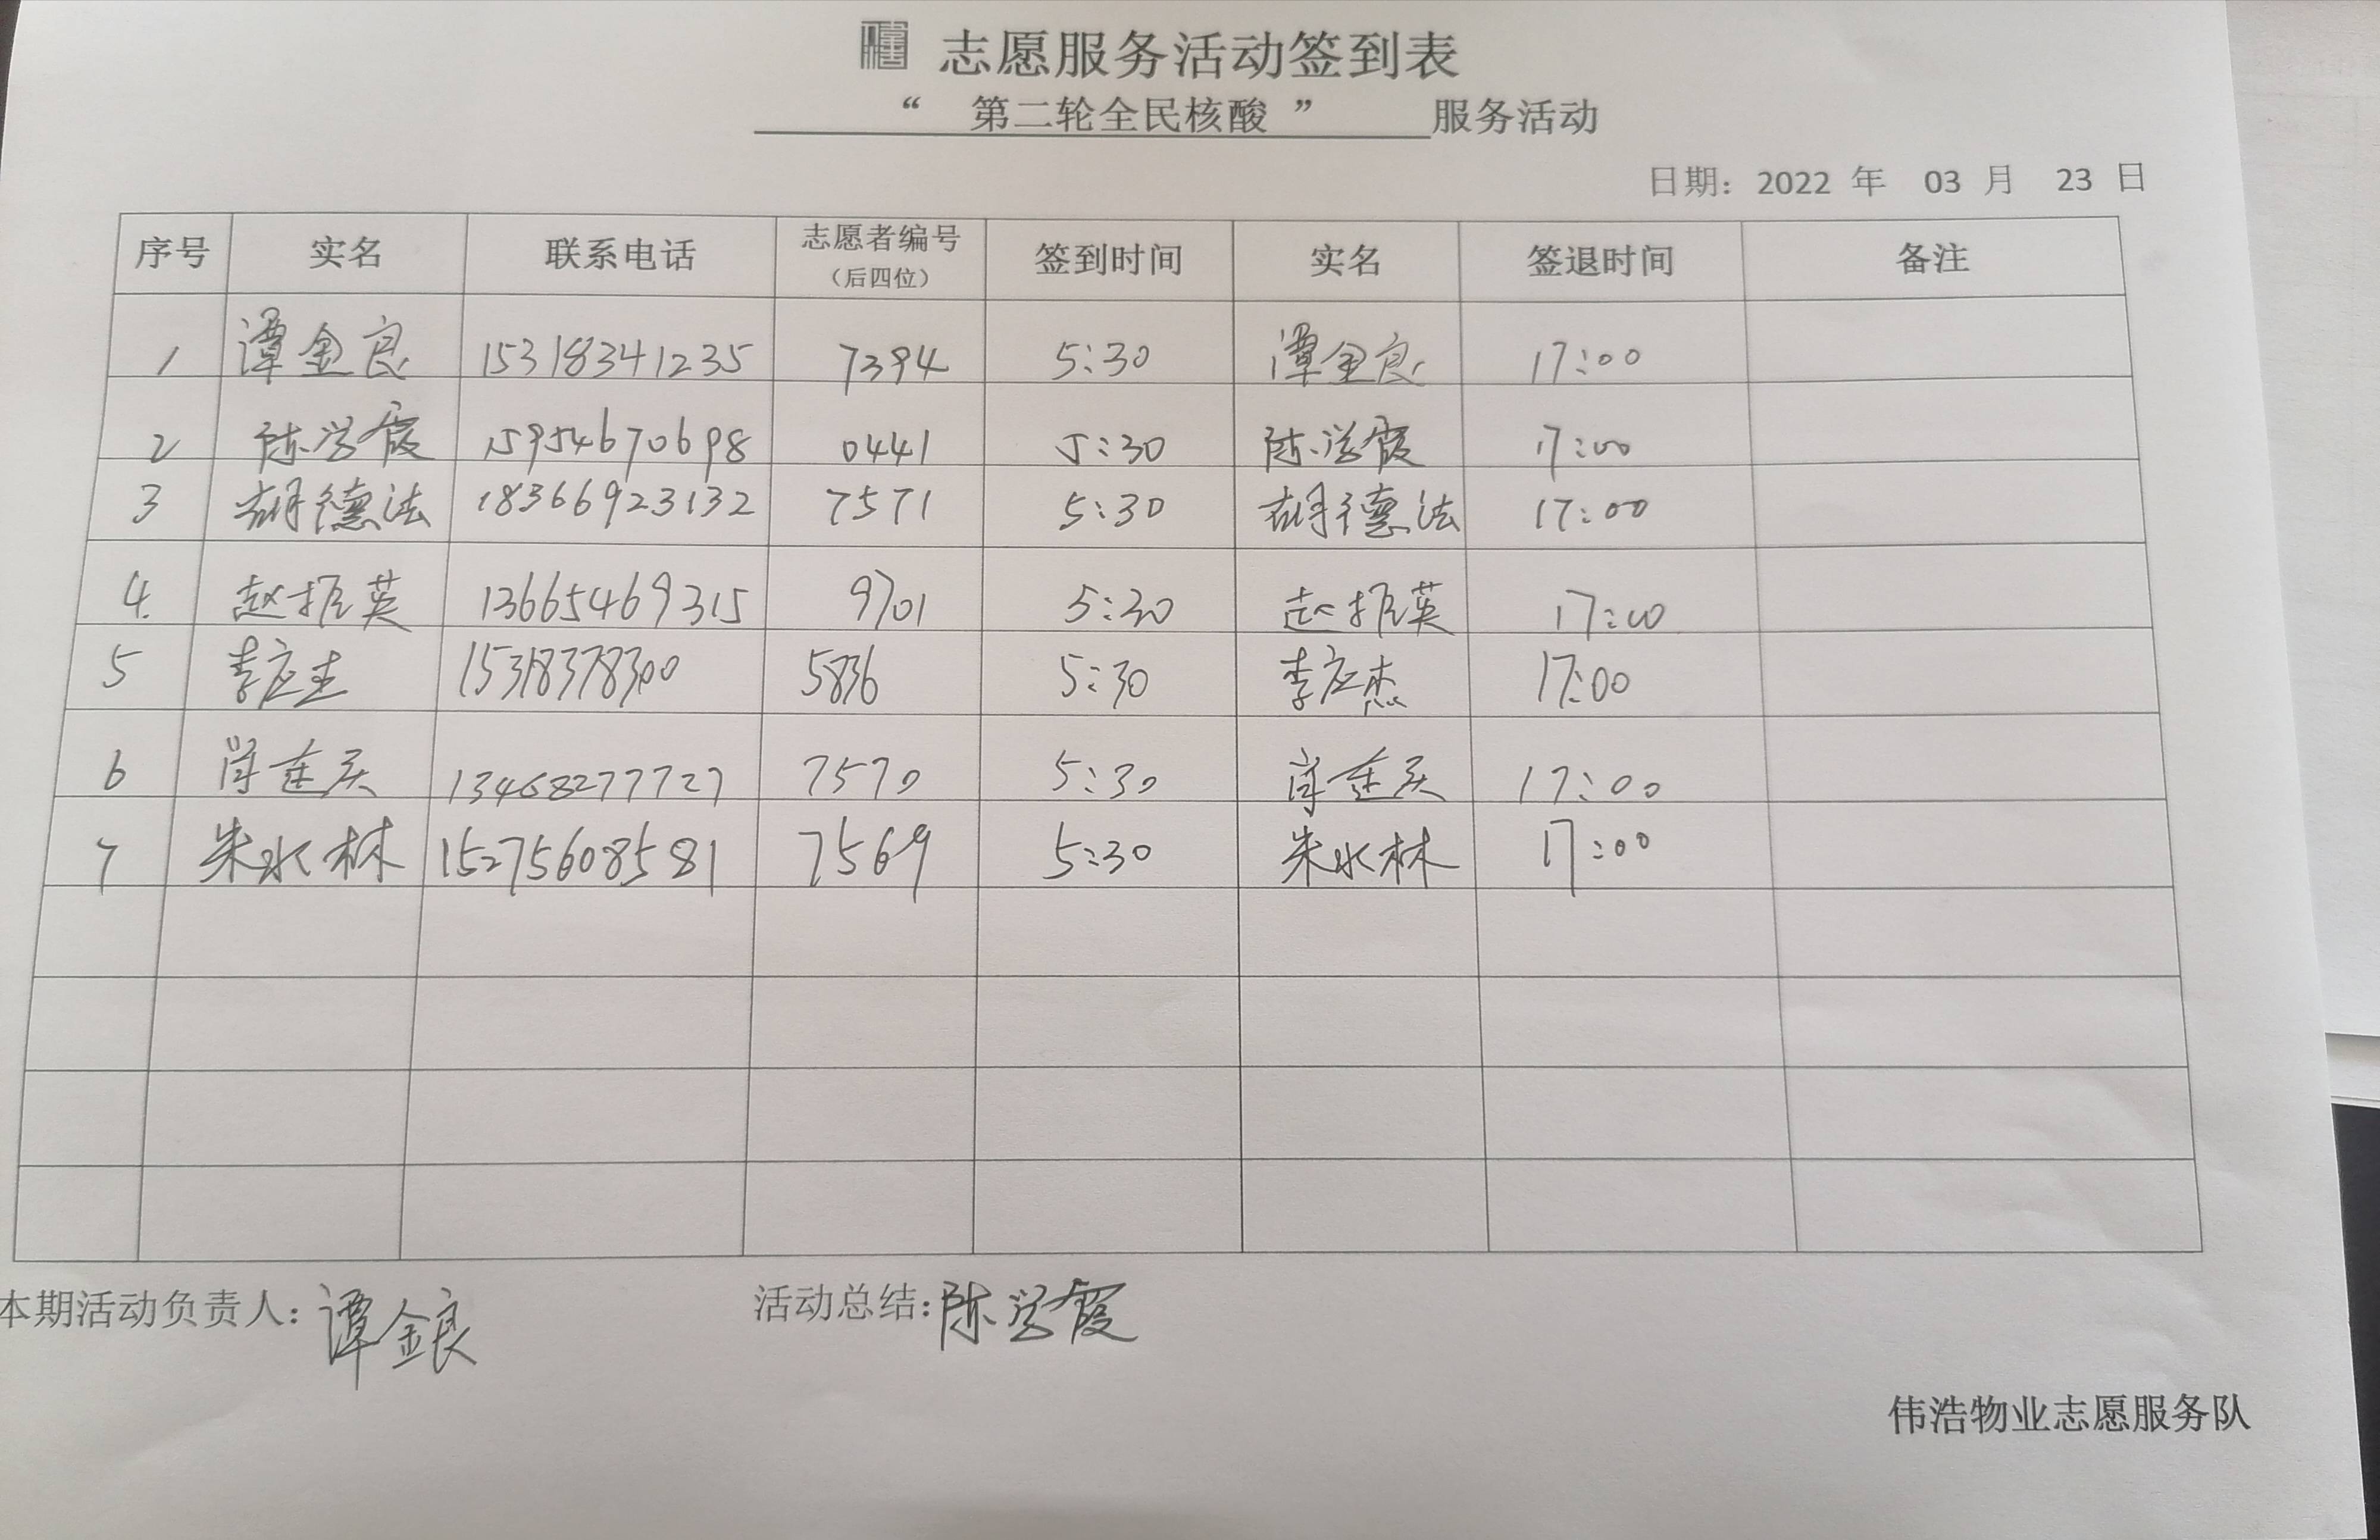 志愿服务活动签到表
“ 第二轮全民核酸 ” 服务活动
日期：2022 年 03 月 23 日
序号 实名 联系电话 志愿者编号（后四位） 签到时间 实名 签退时间 备注
1 谭金良 15318341235 7394 5:30 谭金良 17:00
2 陈学霞 15954670698 0441 5:30 陈学霞 17:00
3 胡德法 18366923132 7571 5:30 胡德法 17:00
4. 赵振英 13665469315 9701 5:30 赵振英 17:00
5 李应杰 15318378300 5836 5:30 李应杰 17:00
6 13468277727 7570 5:30 17:00
7 朱水林 15275608581 7569 5:30 朱水林 17:00
本期活动负责人：谭金良 活动总结：陈学霞
伟浩物业志愿服务队